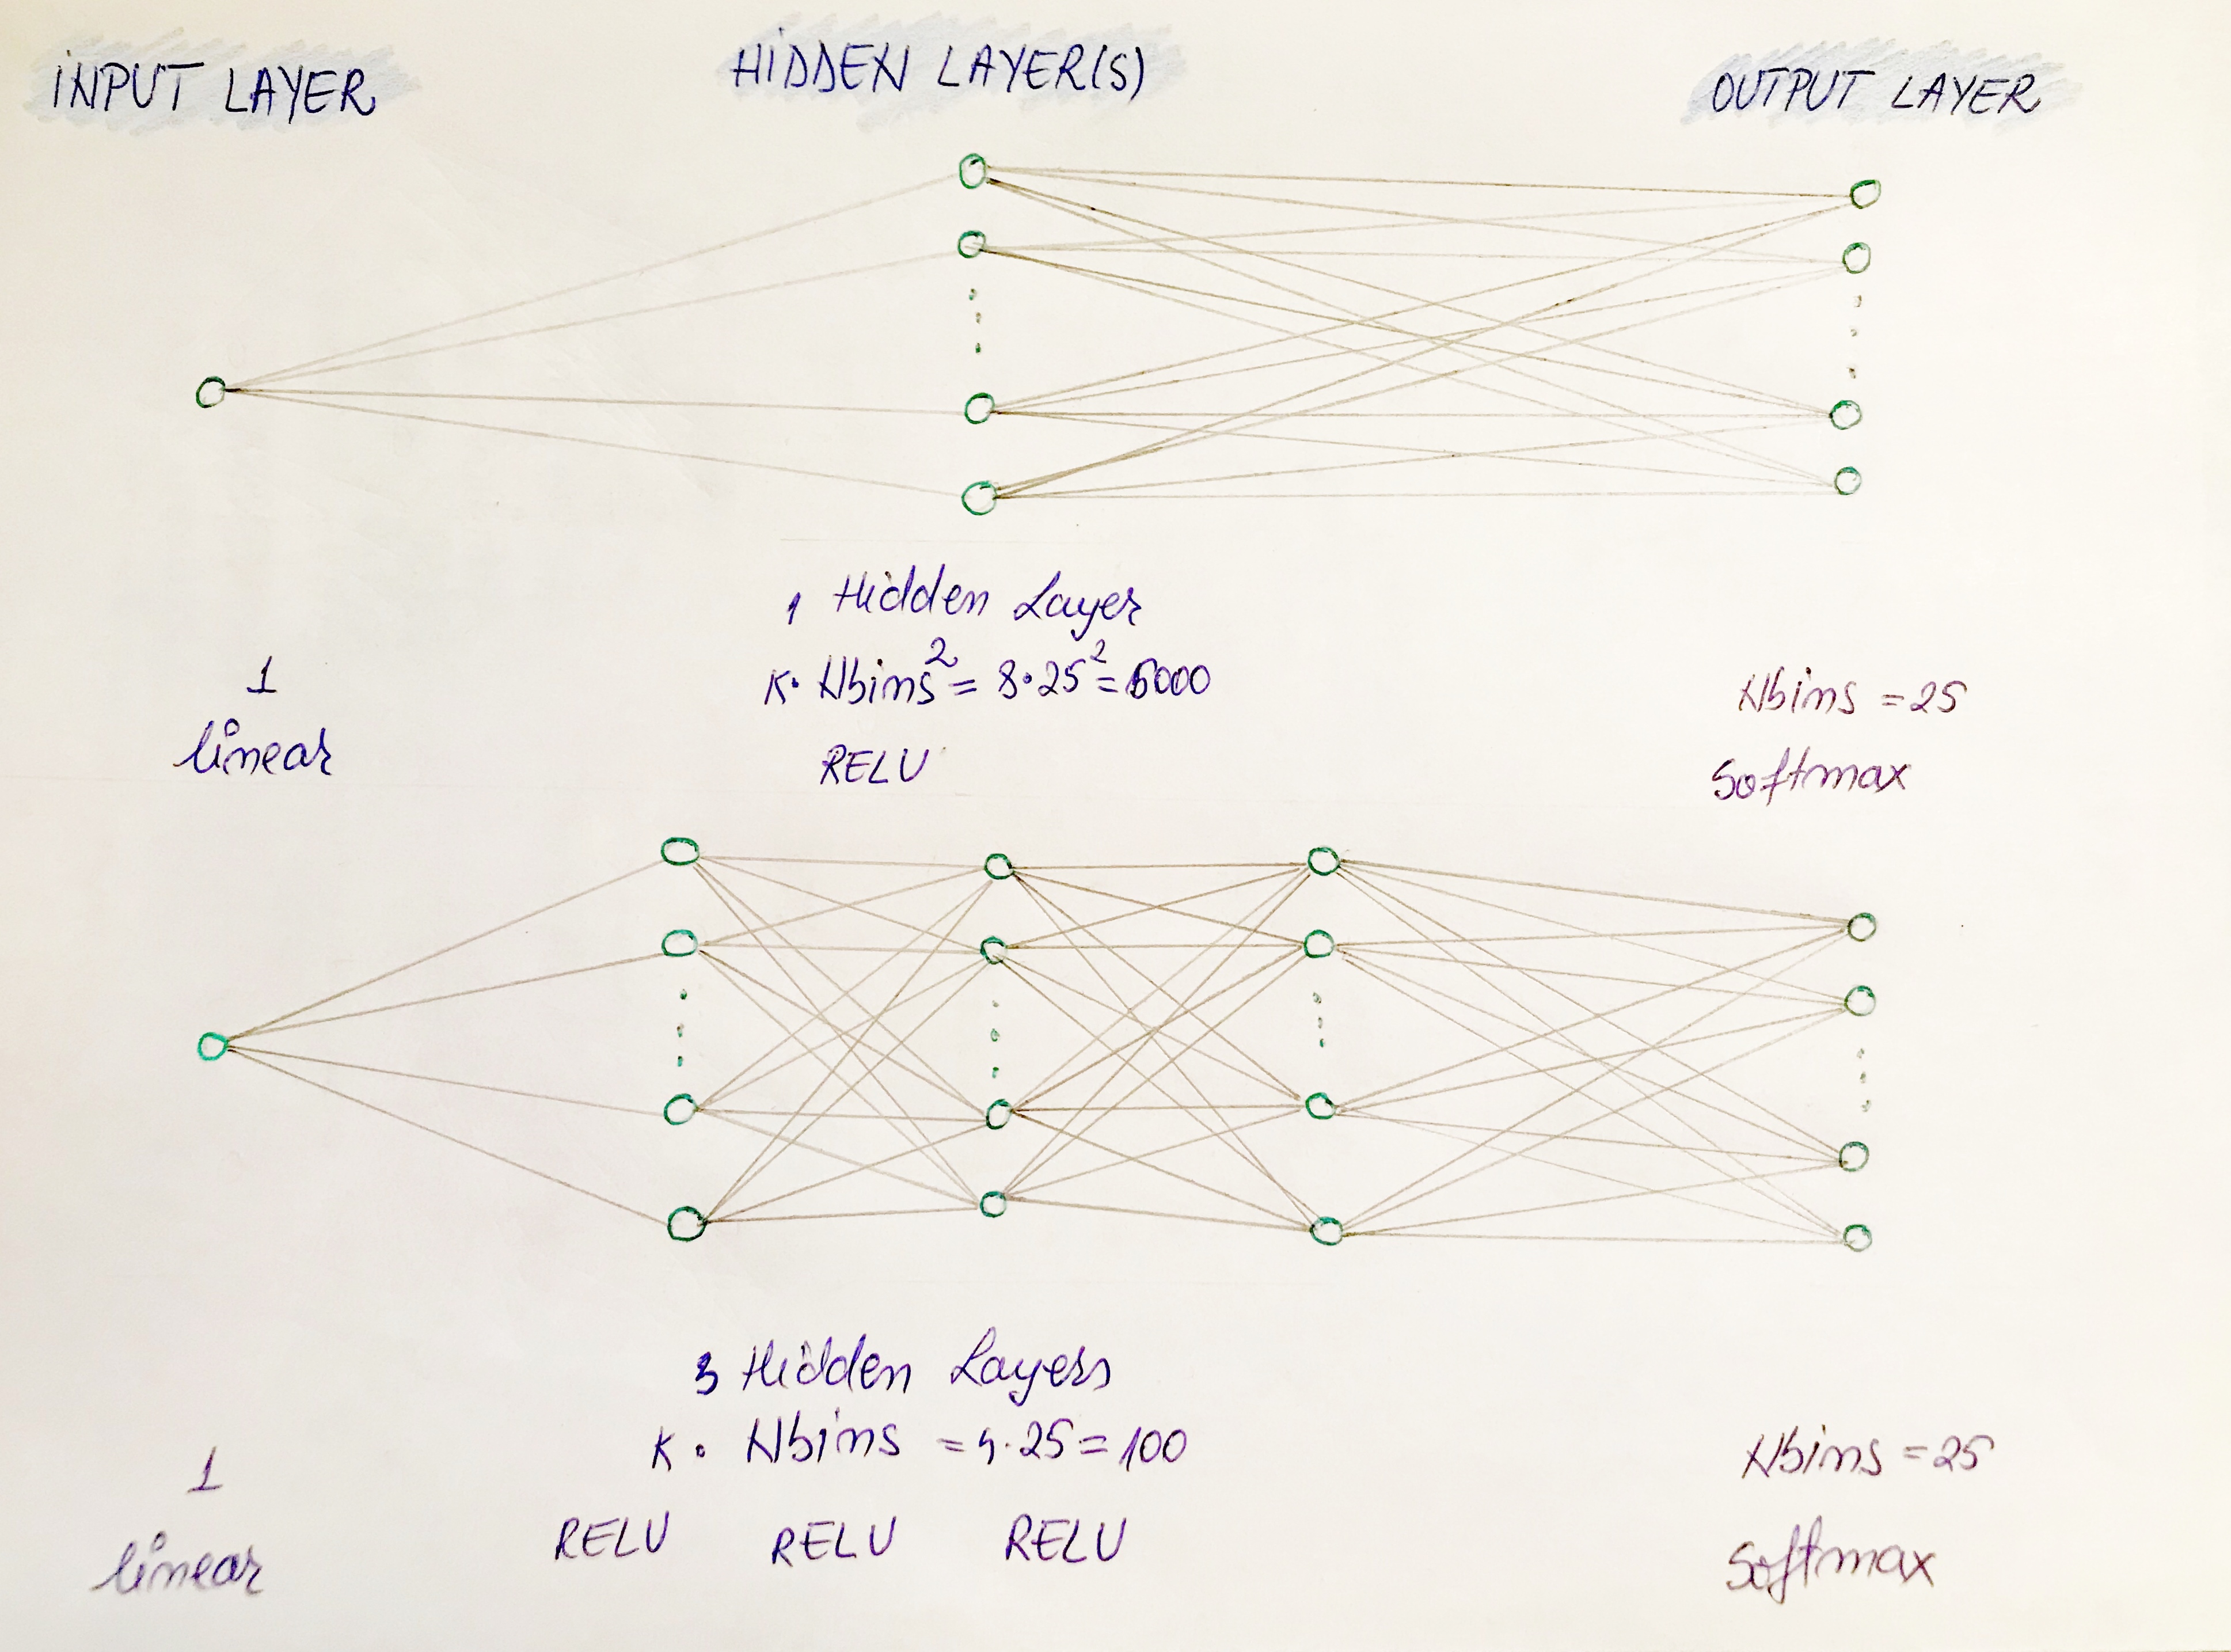 INPUT LAYER
HIDDEN LAYER(S)
OUTPUT LAYER
1 Hidden Layer
K· Nbins² = 8·25² = 5000
RELU
1
linear
Nbins = 25
Softmax
3 Hidden Layers
K · Nbins = 4·25 = 100
RELU RELU RELU
1
linear
Nbins = 25
Softmax